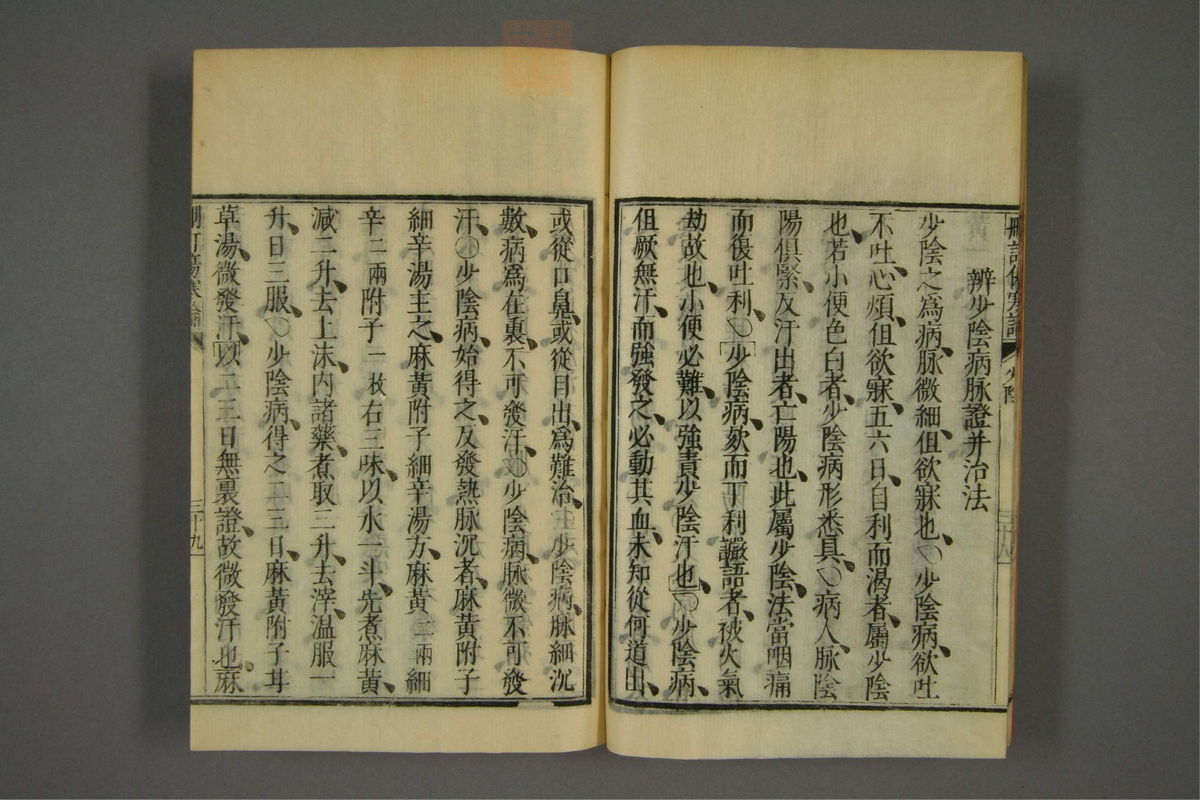 刪訂傷寒論
少陰
辨少陰病脉證并治法
少陰之爲病、脉微細、但欲寐也、○少陰病、欲吐
不吐、心煩、但欲寐、五六日、自利而渴者、屬少陰
也、若小便色白者、少陰病形悉具、○病人脉陰
陽俱緊、反汗出者、亡陽也、此屬少陰、法當咽痛
而復吐利、○少陰病、欬而下利、讝語者、被火氣
劫故也、小便必難、以強責少陰汗也、○少陰病、
但厥無汗、而強發之、必動其血、未知從何道出、
或從口鼻、或從目出、爲難治、○少陰病、脉細沉
數、病爲在裏、不可發汗、○少陰病、脉微、不可發
汗、○少陰病、始得之、反發熱脉沉者、麻黃附子
細辛湯主之、麻黃附子細辛湯方、麻黃二兩細
辛二兩附子一枚右三味、以水一斗、先煮麻黃、
減二升、去上沫、内諸藥、煮取三升、去滓、温服一
升、日三服、○少陰病、得之二三日、麻黃附子甘
草湯、微發汗、以二三日無裏證、故微發汗也、麻
三十九